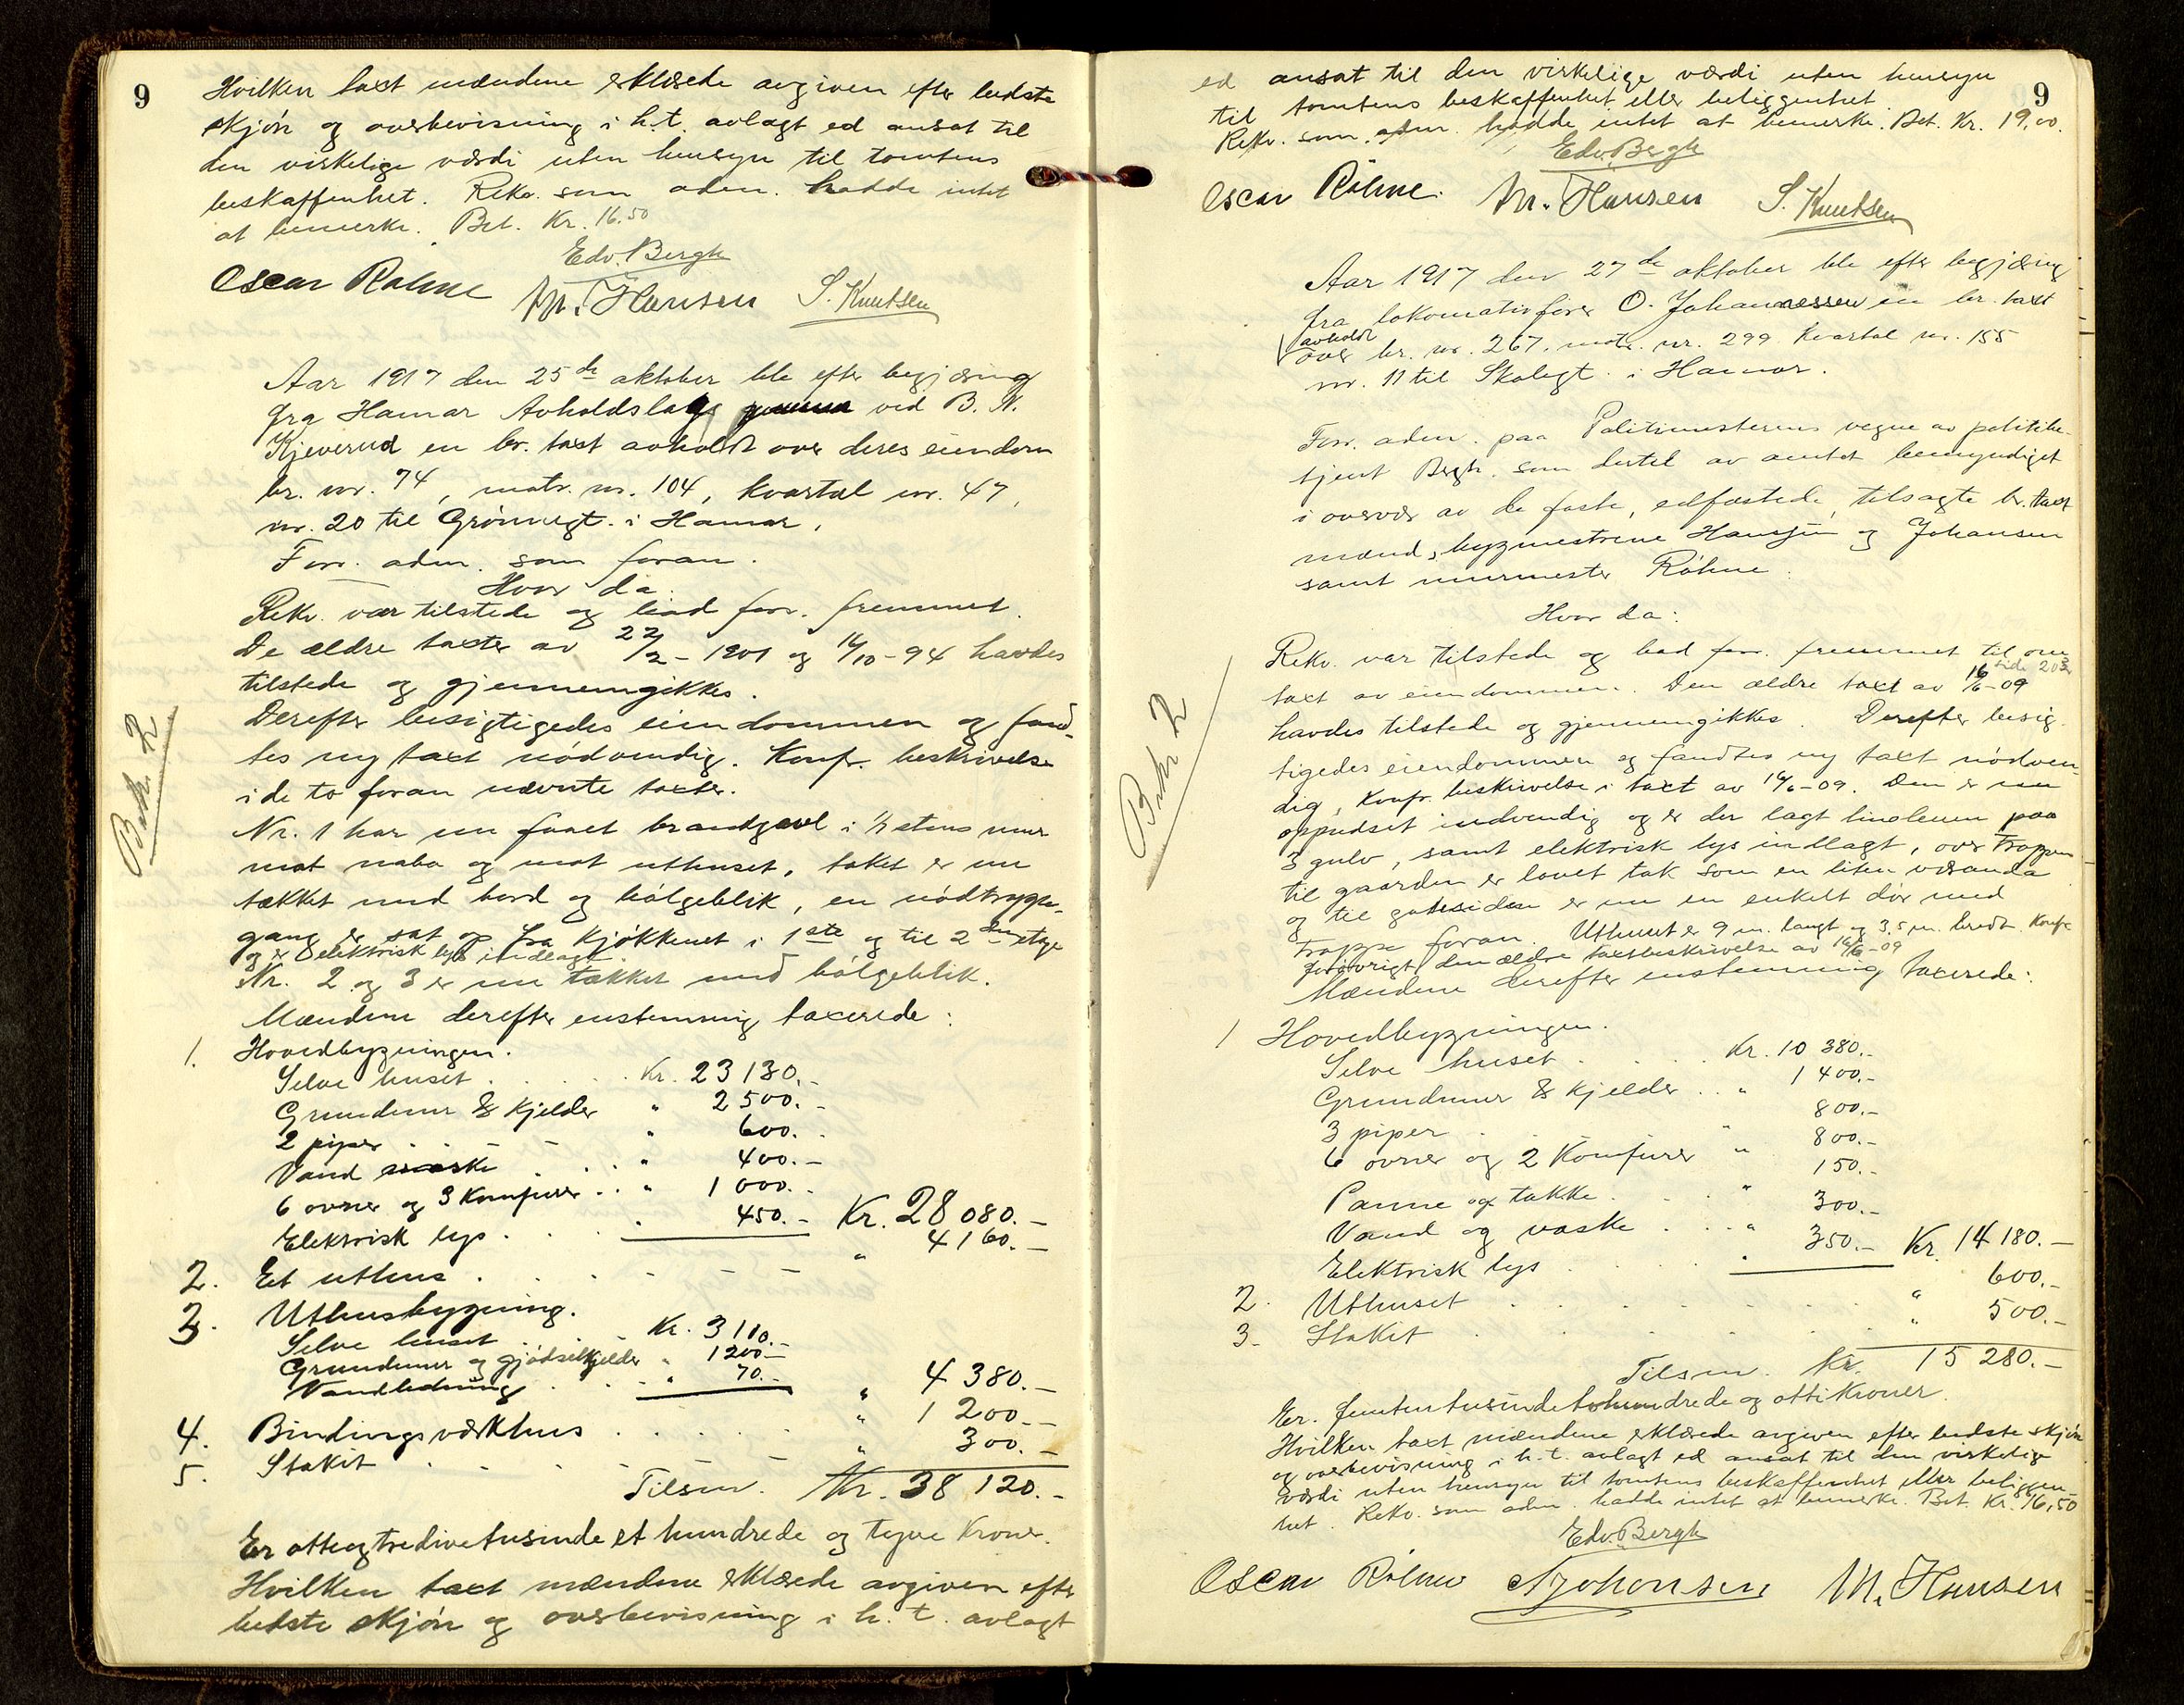 9
Hvilken taxt mændene erklærede avgiven efter bedste
skjøn og overbevisning i h.t. avlagt ed ansat til
den virkelige værdi uten hensyn til tomtens
beskaffenhet. Rekv. som adm. hadde intet
at bemerke. Bet. Kr. 16.50
Edv. Bergh
Oscar Röhne M. Hansen S. Knutsen
Aar 1917 den 25de oktober ble efter begjæring
fra Hamar Avholdslag ved B. N.
Kjeverud en br. taxt avholdt over deres eiendom
br. nr. 74, matr. nr. 104, kvartal nr. 47,
nr. 20 til Grønnegt. i Hamar.
Forr. adm. som foran.
Hvor da:
Rekv. var tilstede og bad forr. fremmet.
De ældre taxter av 22/2-1901 og 16/10-94 havdes
tilstede og gjennemgikkes.
Derefter besigtigedes eiendommen og fand-
tes ny taxt nødvendig. Konfr. beskrivelse
i de to foran nævnte taxter.
Nr. 1 har nu faaet brandgavl i 1/2 stens mur
mot nabo og mot uthuset, taket er nu
tækket med bord og bølgeblik, en nødtrappe-
gang er sat op fra kjøkkenet i 1ste og til 2den etage
og er elektrisk lys indlagt.
Nr. 2 og 3 er nu tækket med bølgeblik.
Mændene derefter enstemmig taxerede:
1. Hovedbygningen.
Selve huset . . . . . Kr. 23130.-
Grundmur & Kjelder " 2500.-
2 piper . . - - " 600.-
Vand . . . " 400.-
6 ovner og 3 Komfurer . . " 1000.-
Elektrisk lys . . . " 450.- Kr. 28080.-
2. Et uthus . . . - - - " 4160.-
3. Uthusbygning.
Selve huset . . . Kr. 3110.-
Grundmur og gjødselkjelder " 1200.-
Vandledning . . . " 70.- " 4380.-
4. Bindingsværkhus . . . . . " 1200.-
5. Stakit . . . . . . " 300.-
Tilsm. Kr. 38120.-
Er otteogtredivetusinde et hundrede og tyve Kroner.
Hvilken taxt mændene erklærede avgiven efter
bedste skjøn og overbevisning i h. t. avlagt
Bok 2
9
ed ansat til den virkelige værdi uten hensyn
til tomtens beskaffenhet eller beliggenhet
Rekv. som adm. hadde intet at bemerke. Bet. Kr. 19.00.
Edv. Bergh
Oscar Röhne. M. Hansen S. Knutsen
Aar 1917 den 27de oktober ble efter begjæring
fra lokomotivfører O. Johannessen en br. taxt
avholdt
over br. nr. 267, matr. nr. 299 Kvartal nr. 155
nr. 11 til Skolegt. i Hamar.
Forr. adm. paa Politimesterens vegne av politibe-
tjent Bergh. som dertil av amtet bemyndiget
i overvær av de faste, edfæstede, tilsagte br. taxt
mænd, bygmestrene Hansen og Johansen
samt murmester Röhne.
Hvor da:
Rekv. var tilstede og bad forr. fremmet til om
taxt av eiendommen. Den ældre taxt av 16/6-09 side 203
havdes tilstede og gjennemgikkes. Derefter besig-
tigedes eiendommen og fandtes ny taxt nødven-
dig, Konfr. beskrivelse i taxt av 16/6-09. Den er nu
oppudset indvendig og er der lagt linoleum paa
3 gulv, samt elektrisk lys indlagt, over trappen
til gaarden er lavet tak som en liten veranda
og til gatesiden er nu en enkelt dør med
trappe foran. Uthuset er 9 m. langt og 3,5 m. bredt. Konfr.
forøvrigt den ældre taxtbeskrivelse av 16/6-09
Mændene derefter enstemmig taxerede:
1 Hovedbygningen.
Selve huset . . . . Kr. 10380.-
Grundmur & Kjelder . . " 1400.-
3 piper . . . " 800.-
6 ovner og 2 Komfurer " 800.-
Panne og takke . . . " 150.-
Vand og vaske . . . " 300.-
Elektrisk lys . . . . " 350.- Kr. 14180.-
2. Uthuset . . . . . . " 600.-
3- Stakit . . . . . . " 500.-
Tilsm. Kr. 15280.-
Er. femtentusindetohundrede og otti Kroner.
Hvilken taxt mændene erklærede avgiven efter bedste skjøn
og overbevisning i h.t. avlagt ed ansat til den virkelige
værdi uten hensyn til tomtens beskaffenhet eller beliggen-
het. Rekv. som adm. hadde intet at bemerke. Bet. Kr. 16,50
Edv. Bergh
Oscar Röhne A Johansen M. Hansen
Bok 2